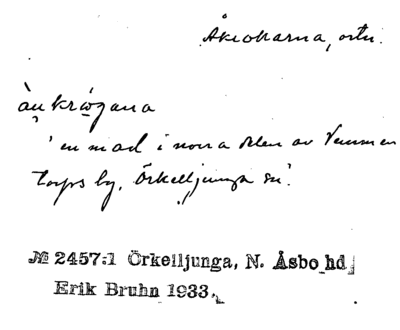 Åkrokarna, ortn.
àu̥ krẃ̠gana
'en mad i norra delen av Vemmen
torps by, Örkelljunga sn'.
№ 2457:1 Örkelljunga, N. Åsbo hd
Erik Bruhn 1933.